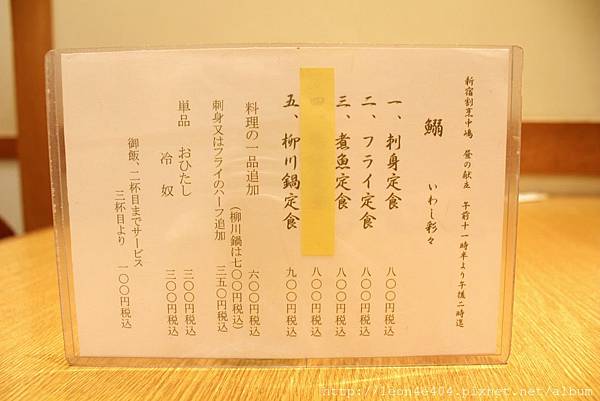 新宿割烹中嶋 昼の献立 午前十一時半より午後二時迄
鰯 いわし彩々
一、刺身定食 八〇〇円税込
二、フライ定食 八〇〇円税込
三、煮魚定食 八〇〇円税込
四 八〇〇円税込
五、柳川鍋定食 九〇〇円税込
料理の一品追加 六〇〇円税込
(柳川鍋は七〇〇円税込)
刺身又はフライのハーフ追加 三五〇円税込
単品 おひたし 三〇〇円税込
冷奴 三〇〇円税込
御飯、二杯目までサービス
三杯目より 一〇〇円税込
http://leon46404.pixnet.net/album